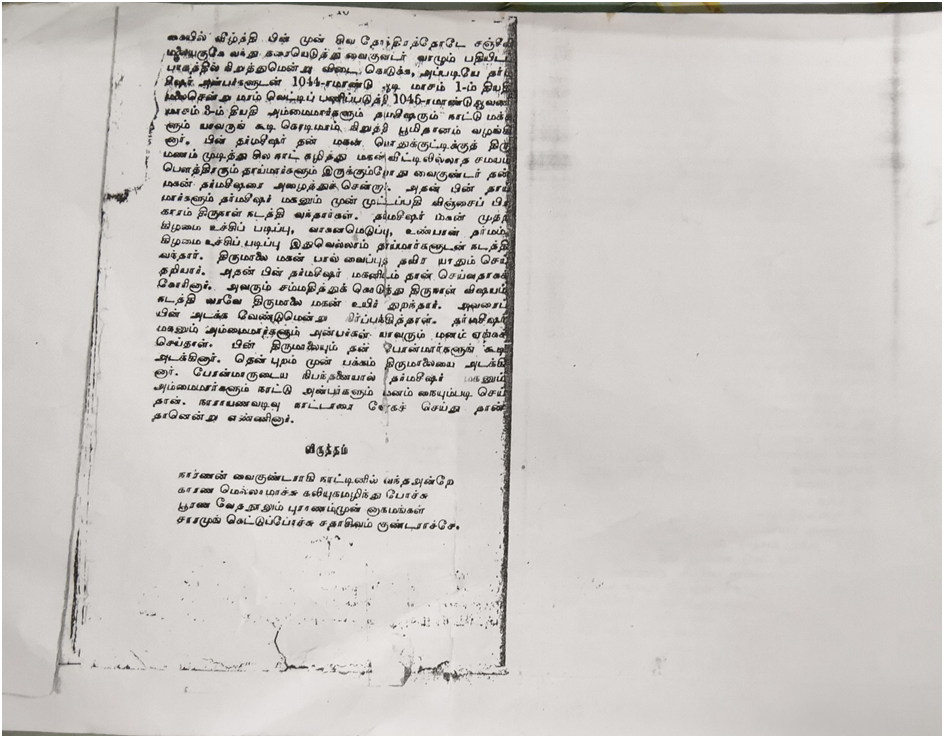 கையில் வீழ்த்தி பின் முன் சிவ தோத்திரத்தோடே சஞ்சீவி
மலையருகே வந்து தரையெடுத்து வைகுண்டர் வாழும் பதியிட
பாகத்தில் கிறுத்துமென்று விடை கொடுக்க, அப்படியே தர்ம
சீஷர் அன்பர்களுடன் 1044-ராமாண்டு ஆடி மாசம் 1-ம் தியதி
மலைசென்று மரம் வெட்டிப் பணிப்படுத்தி 1045-ராமாண்டுஆவணி
மாசம் தியதி அம்மைமார்களும் தர்மசீஷரும் நாட்டு மக்க
ளும் யாவருங் கூடி கொடிமரம் நிறுத்தி பூமிதானம் வழங்கி
னார். பின் தர்மசீஷர் தன் மகன் பொதுக்குட்டிக்குத் திரு
மணம் முடித்து சில நாட் கழித்து மகன் வீட்டிலில்லாத சமயம்
பௌத்திரரும் தாய்மார்களும் இருக்கும்போது வைகுண்டர் தன்
மகன் தர்மசீஷரை அழைத்துச் சென்றார். அதன் பின் தாய்
மார்களும் தர்மசீஷர் மகனும் முன் முட்டப்பதி விஞ்சைப் பிர
காரம் திருநாள் நடத்தி வந்தார்கள். தர்மசீஷர் மகன் முதற்
கிழமை உச்சிப் படிப்பு, வாகனமெடுப்பு, உண்பான் தர்மம்,
கிழமை உச்சிப் படிப்பு இதுவெல்லாம் தாய்மார்களுடன் நடத்தி
வந்தார். திருமாலை மகன் பால் வைப்புத் தவிர யாதும் செய்
தறியார். அதன் பின் தர்மசீஷர் மகனிடம் தான் செய்வதாகக்
கோரினார். அவரும் சம்மதித்துக் கொடுத்து திருநாள் விஷயம்
நடத்தி வரவே திருமாலை மகன் உயிர் துறந்தார். அவரைப்
பின் அடக்க வேண்டுமென்று நிர்ப்பந்தித்தாள். தர்மசீஷர்
மகனும் அம்மைமார்களும் அன்பர்கள் யாவரும் மனம் ஏங்கச்
செய்தாள். பின் திருமாலையும் தன் போன்மார்களுங் கூடி
அடக்கினார். தென் புறம் முன் பக்கம் திருமாலையை அடக்கி
னார். போன்மாருடைய நிபந்தனையால் தர்மசீஷர் மகனும்
அம்மைமார்களும் நாட்டு அன்பர்களும் மனம் நையும்படி செய்
தான். நாராயணவடிவு நாட்டாரை செய்து தான்
தானென்று எண்ணினார்.
விருத்தம்
நார்ணன் வைகுண்டராகி நாட்டினில் வந்தஅன்றே
காரண மெல்லாமாச்சு கலியுகமழிந்து போச்சு
பூரண வேதநூலும் புராணம்முன் னாகமங்கள்
சாரமுங் கெட்டுப்போச்சு சதாசிவம் ரூண்டராச்சே.